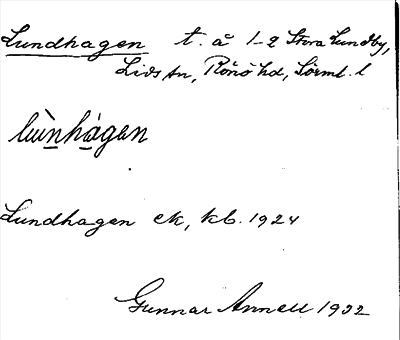 Lundhagen t. å 1-2 Stora Lundby,
Lids sn, Rönö hd, Sörml. l
Lundhagen ek, kb. 1924
Gunnar Annell 1932